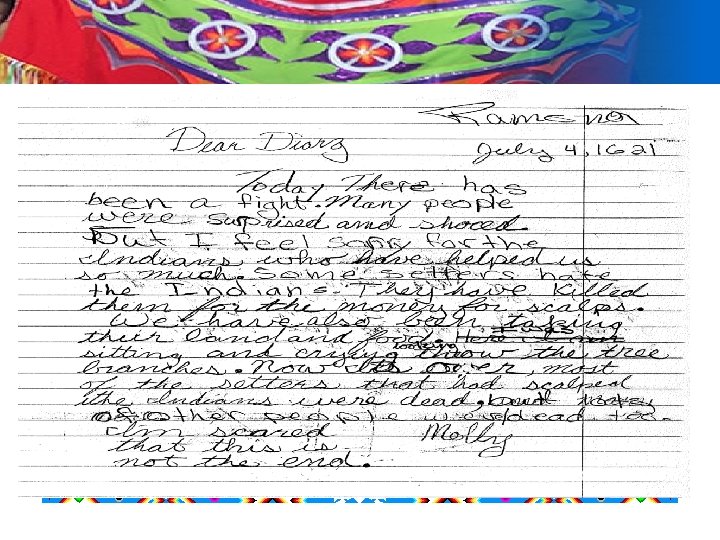 Ramona
Dear Diary July 4, 1621
Today There has
been a fight. Many people
were surprised and shoced.
But I feel sorry for the
Indians who have helped us
so much. Some setters hate
the Indians. They have killed
them for the money for scalps.
We have also been taking
their land and food. Here I am
sitting and crying looking throw the tree
branches. Now its over, most
of the setters that had scalped
the Indians were dead, but
of other people were dead too.
Im scared Molly
that this is
not the end.